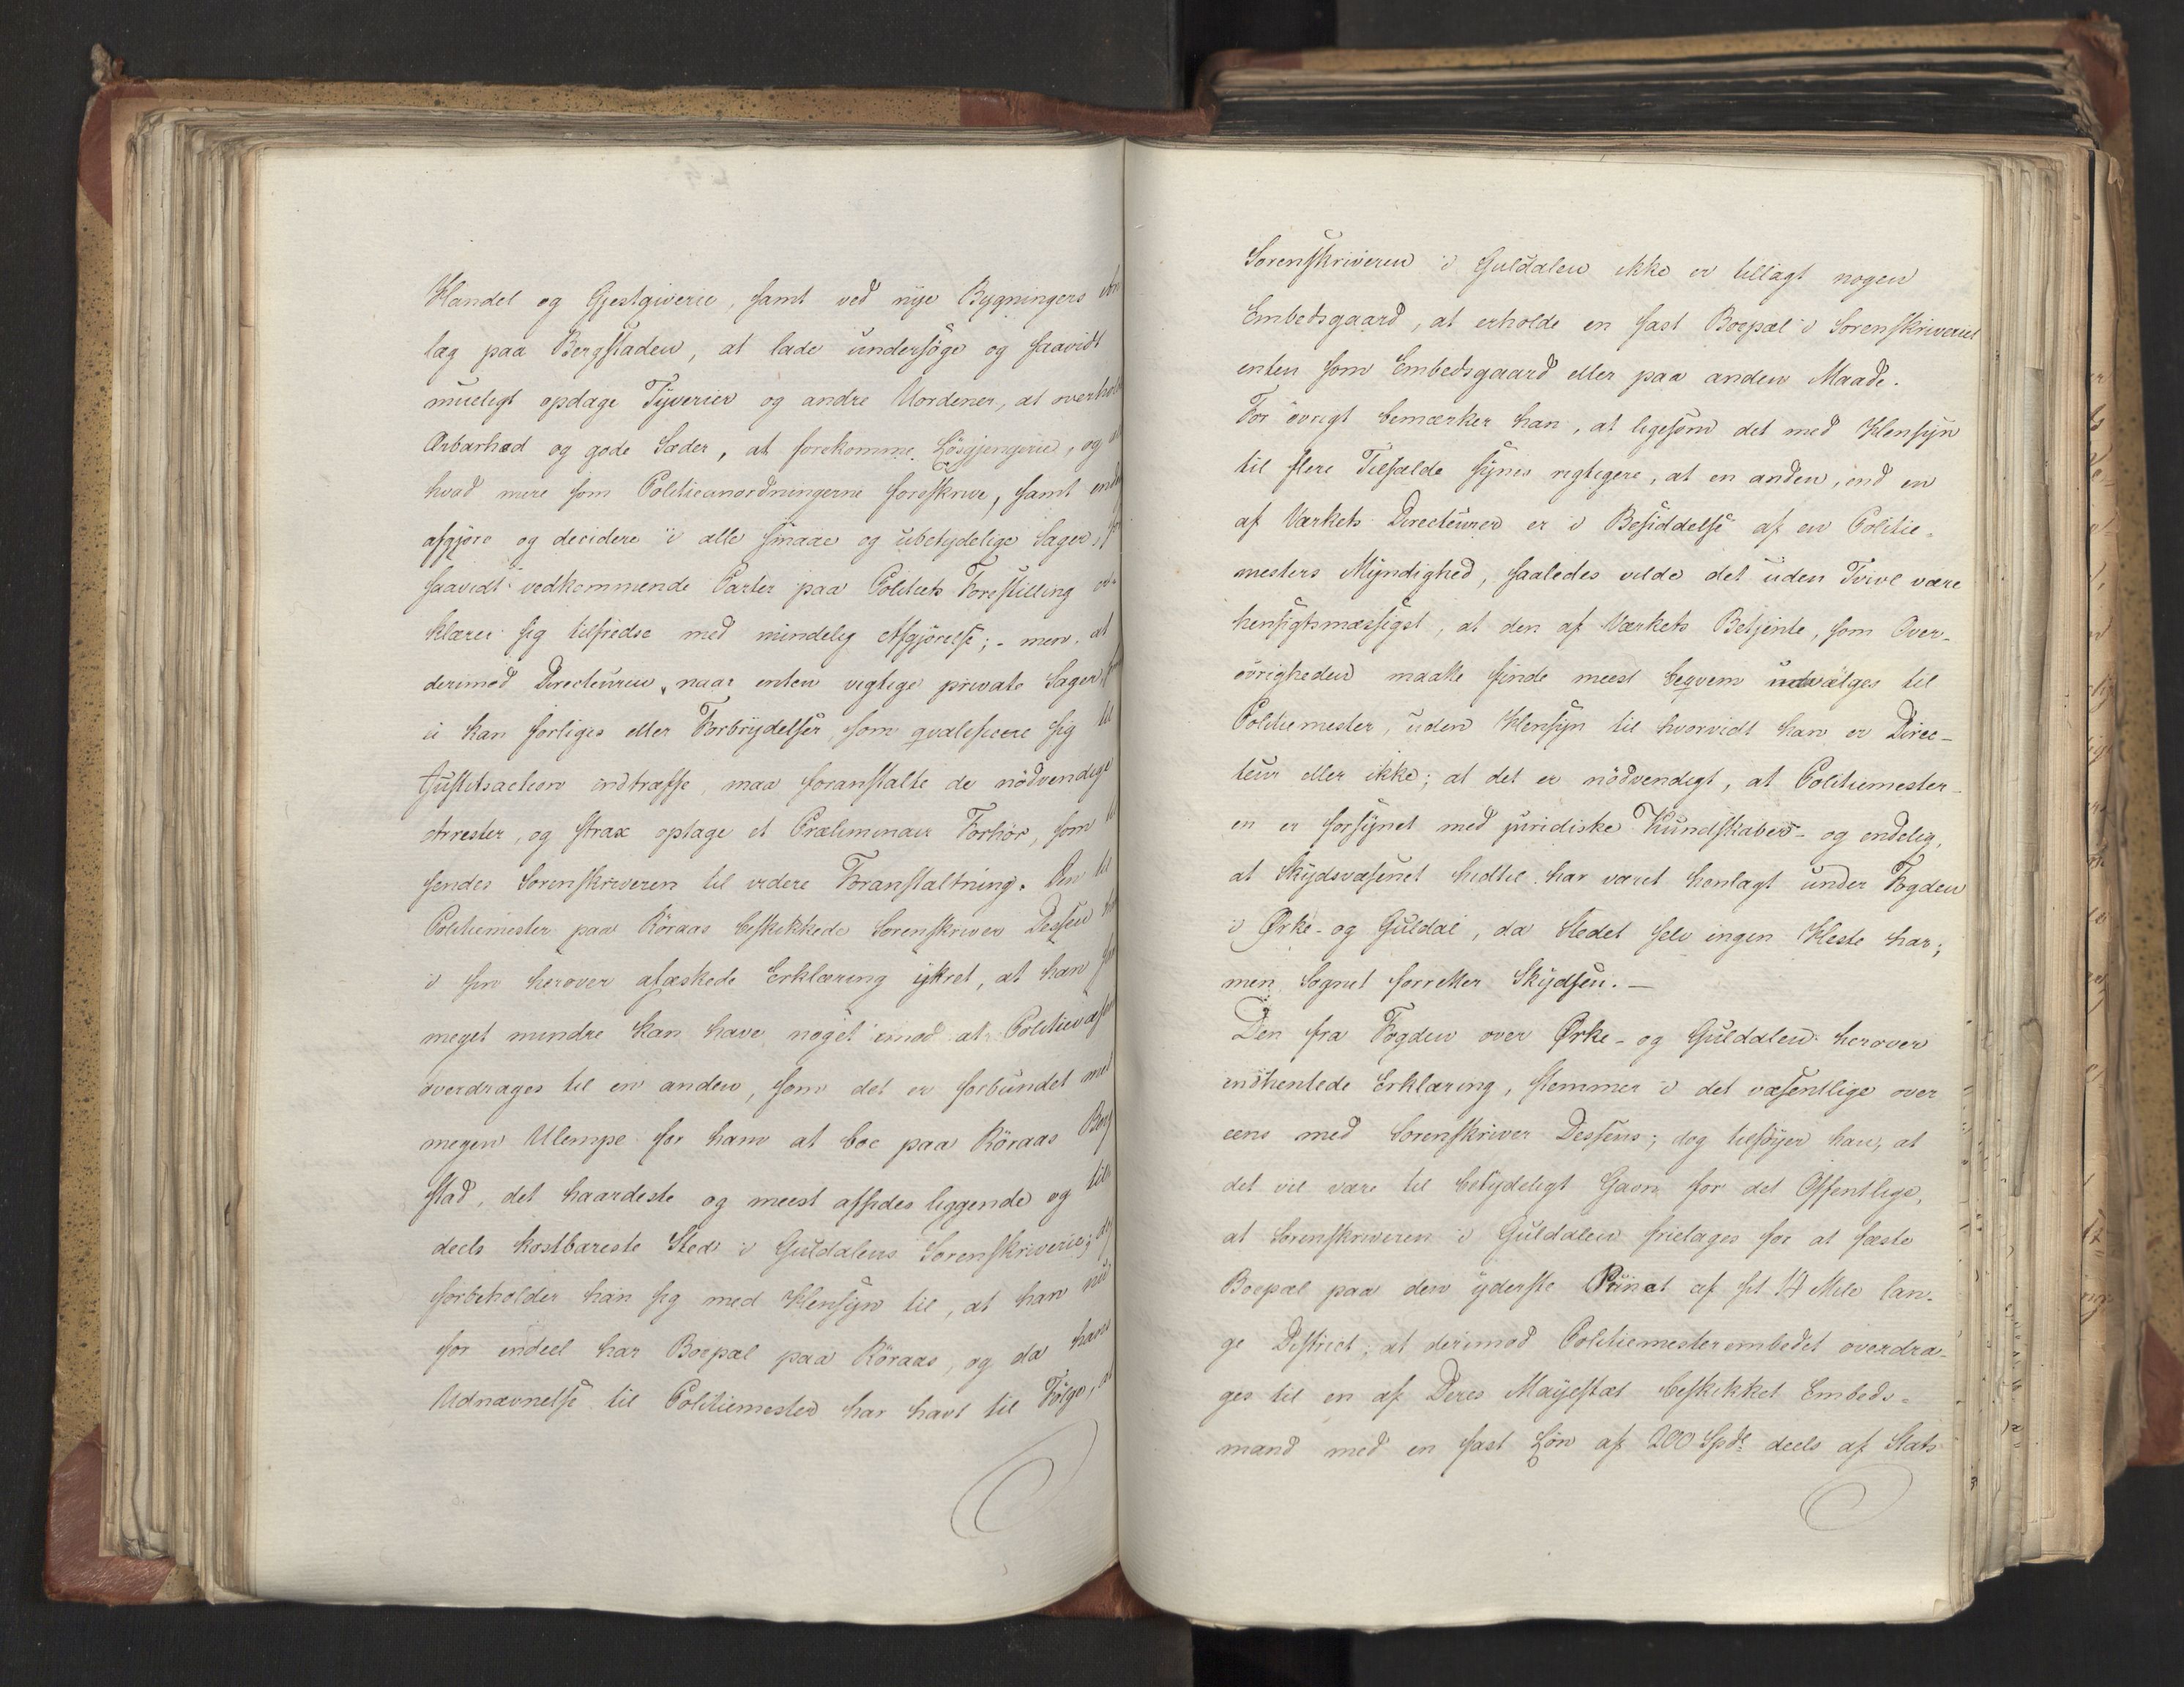 Handel og Gjestgiverie, samt ved nye Bygningers An
læg paa Bergstaden, at lade undersöge og saavidt
mueligt opdage Tyverier og andre Uordener, at overhol
Ærbarhed og gode Sæder, at forekomme Lösgjengerie, og
hvad mere som Politieanordningerne foreskrive, samt
afgjöre og decidere i alle smaae og ubetydelige Sager,
saavidt vedkommende Parter paa Politiets Forestilling er-
klærer sig tilfredse med mindelig Afgjörelse; - men. at
derimod Directeuren, naar enten vigtige private Sager
ei kan forliges eller Forbrydelser, som qvalificere sig til
Justitsaction indtræffe, maa foranstalte de nödvendige
Arrester, og strax optage et Præliminair Forhör, som
sendes Sorenskriveren til videre Foranstaltning. Den til
Politiemester paa Röraas beskikkede Sorenskriver Dessen
i sin herover afæskede Erklæring yttret, at han
meget mindre kan have noget imod at Politievæsen
overdrages til en anden, som det er forbundet med
megen Ulempe for ham at boe paa Röraas Berg
stad, det haardeste og meest afsides liggende og til
deels kostbareste Sted i Guldalens Sorenskriverie;
forbeholder han sig med Hensyn til, at han
for endeel har Boepæl paa Röraas, og da hans
Udnævnelse til Politiemester har havt til Fölge, at
Sorenskriveren i Guldalen ikke er tillagt nogen
Embedsgaard, at erholde en fast Boepæl i Sorenskriveriet
enten som Embedsgaard eller paa anden Maade.
For övrigt bemærker han, at ligesom det med Hensyn
til flere Tilfælde synes rigtigere, at en anden, end en
af Værkets Directeurer er i Besiddelse af en Politie-
mesters Myndighed, saaledes vilde det uden Tvivl være
hensigtsmæssigst, at den af Værkets Betjente, som Over-
övrigheden maatte finde meest beqvem udvælges til
Politiemester, uden Hensyn til hvorvidt han er Direc-
teur eller ikke; at det er nödvendigt, at Politiemester-
en er forsynet med juridiske Kundskaber - og endelig,
at Skydsvæsenet hidtil har været henlagt under Fogden
i Ørke- og Guldal, da Stedet selv ingen Heste har;
men Sognet forretter Skydsen. -
Den fra Fogden over Ørke- og Guldalen herover
indhentede Erklæring, stemmer i det væsentlige over
eens med Sorenskriver Dessens; dog tilföyer han, at
det vil være til betydeligt Gavn for det Offentlige,
at Sorenskriveren i Guldalen fritages for at fæste
Boepæl paa den yderste Punct af sit 14 Mile lan-
ge District; at derimod Politiemesterembedet overdra-
ges til en af Deres Mayestæt beskikket Embeds-
mand med en fast Lön af 200 Spd: deels af Stats